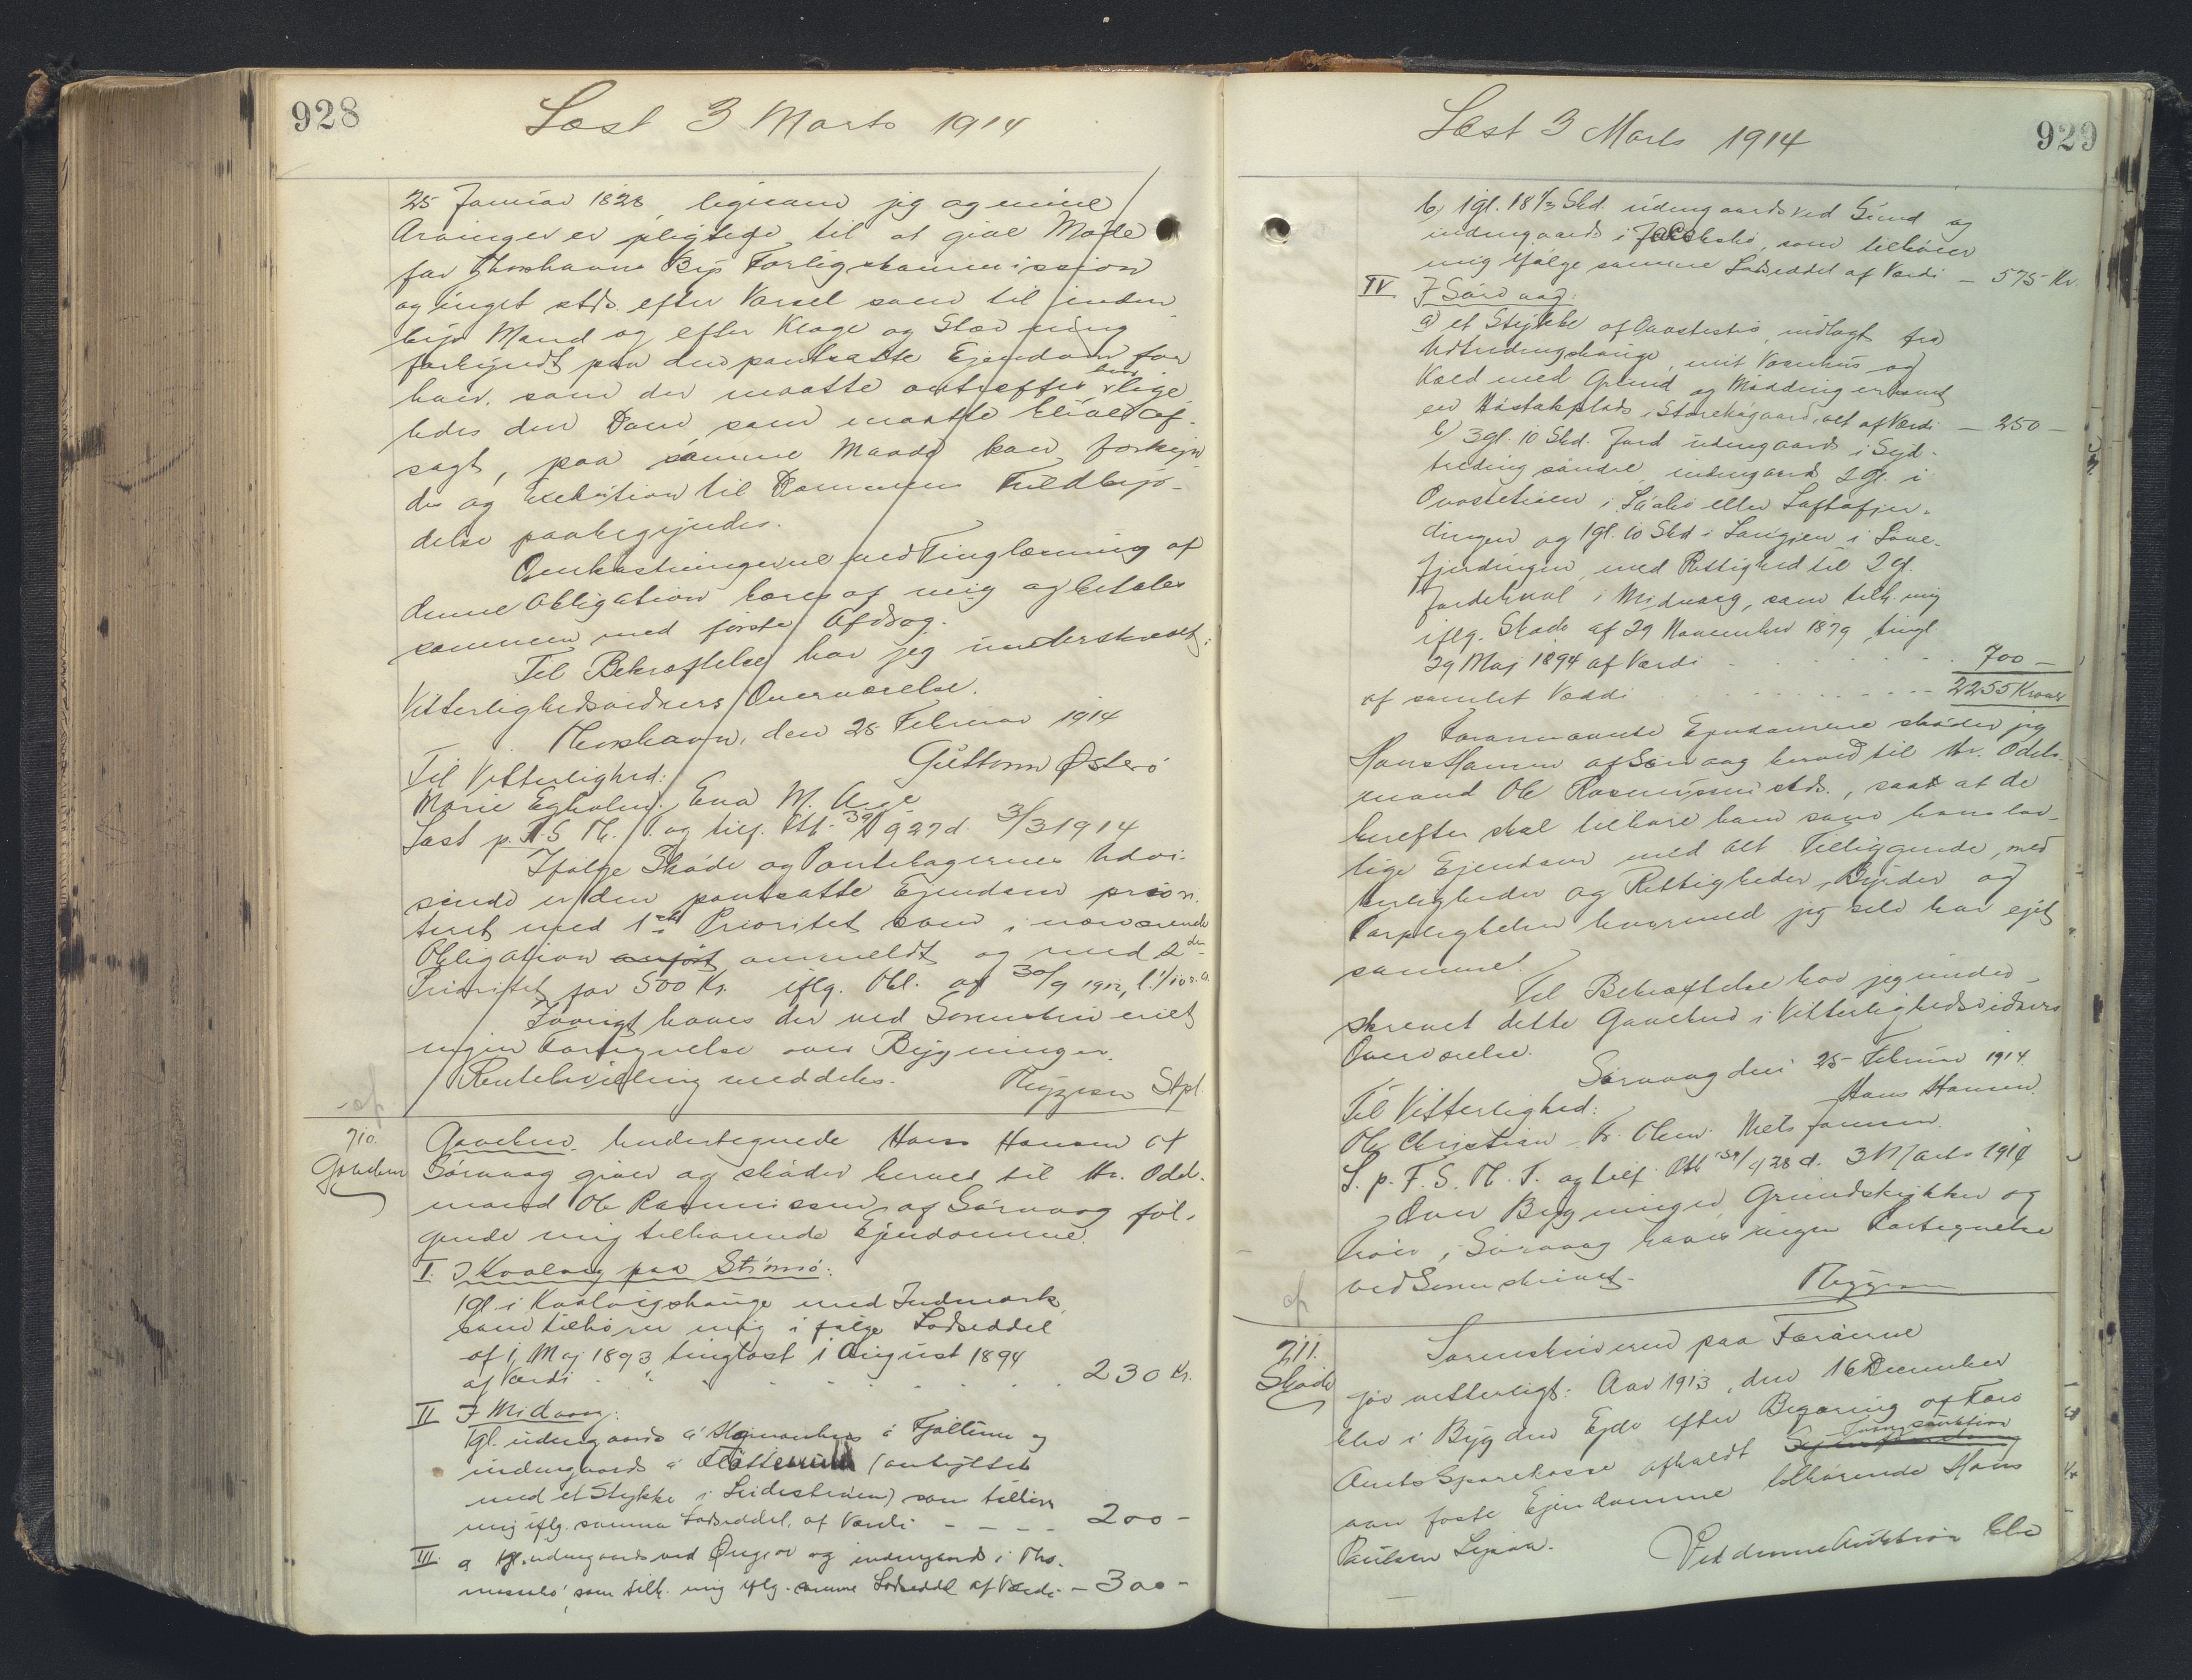 928
Læst 3 Marts 1914
25 Januar 1828, ligesom jeg og mine
Arvinger er pligtige til at give Møde
for Thorshavns Bys Forligskommission
og inget stds. efter Varsel som til inden
bys Mand og efter Klage og Stævning
forkyndt paa den pantsatte Ejendom for
hver, som der maatte antræffes lige
ledes den Dom, som maatte blive af-
sagt, paa samme Maade kan forkyn
des og Exekution til Dommens Fuldbyr-
delse paabegyndes.
Omkostningerne ved Tinglæsning af
denne Obligation bæres af mig og betales
sammen med første Afdrag.
Til Bekræftelse har jeg underskrevet i
Vitterlighedsvidners Overværelse.
Thorshavn, den 28 Februar 1914
Til Vitterlighed: Guttorm Østerø
Marie Egholm. Eva M.
Læst p. F. S. Th. T. og tilf. Ptt. 39/927 d. 3/3 1914
Ifølge Skøde og Pantebøgernes Udvi-
sende er den pantsatte Ejendom priori
teret med 1ste Prioritet som i nærværende
Obligation anført anmeldt og med 2den
Prioritet for 500 Kr. iflg. Obl. af 30/9 1912,
Iøvrigt haves der ved Sorenskriveriet
ingen Fortegnelse over Bygninger.
Rentekvittering meddeles. Stpl.
710.
Gavebrev
Gavebrev. Undertegnede Hans Hansen af
Sørvaag giver og skøder herved til Hr. Odels-
mand Ole Rasmussen af Sørvaag føl-
gende mig tilhørende Ejendomme.
I. I Kvalvig paa Strømø:
1 gl. i Kvalvigshauge med Indmark,
som tilhører mig i følge Lodseddel
af 1 Maj 1893 tinglæst 1 August 1894
af Værdi 230 Kr.
II I Midvaag:
1 gl. udengaards á á Fjøllum og
indengaards á (ombyttet
med et Stykke i ) som tilhører
mig iflg. samme Lodseddel, af Værdi - - - - 200 -
III. a gl. udengaards ved og indengaards i
som tilh. mig iflg. samme Lodseddel af Værdi - 300 -
929
Læst 3 Marts 1914
b) 1 gl. 18 1/3 Skd. udengaards ved Sund og
indengaards i , som tilhører
mig ifølge samme Lodseddel af Værdi - 575 Kr.
IV I Sørvaag:
a) et Stykke af , udlagt fra
, mit Vaanhus og
Kæld med Grund og Mødding er samt
en Høstakplads i , alt af Værdi - 250 -
b) 3 gl. 10 Skd. Jord udengaards i Syd-
treding søndre, indengaards 2 gl. i
i eller Loftafjer-
dingen og 1 gl. 10 Skd i i
fjerdingen, med Rettighed til 2 gl.
i Midvaag, som tilh. mig
iflg. Skøde af 29 November 1879 tingl.
29 Maj 1894 af Værdi 700 -
af samlet Værdi 2255 Kroner
Forannævnte Ejendomme skøder jeg
Hans Hansen af Sørvaag herved til Hr. Odels-
mand Ole Rasmussen stds., saa at de
herefter skal tilhøre ham som hans lov-
lige Ejendom med alt Tilliggende, med
Herligheder og Rettigheder, Byrder og
Forpligtelser hvormed jeg selv har ejet
samme.
Til Bekræftelse har jeg under-
skrevet dette Gavebrev i Vitterlighedsvidners
Overværelse.
Sørvaag den 25 Februar 1914.
Til Vitterlighed: Hans Hansen.
Ole Christian Olsen. Niels Jansen.
L. p. F. S. Th. T. og tilf. Ptt 39/928 d. 3 Marts 1914
Over Bygninger, Grundstykker og
i Sørvaag haves ingen Fortegnelse
ved Sorenskriveriet.
711.
Skøde
Sorenskriveren paa Færøerne
gør vitterligt: Aar 1913, den 16 December
blev i Bygden Ejde efter Begæring af Færø
Amts Sparekasse afholdt Tvangsauktion
over faste Ejendomme tilhørende Hans
Poulsen Ved denne Auktion blev